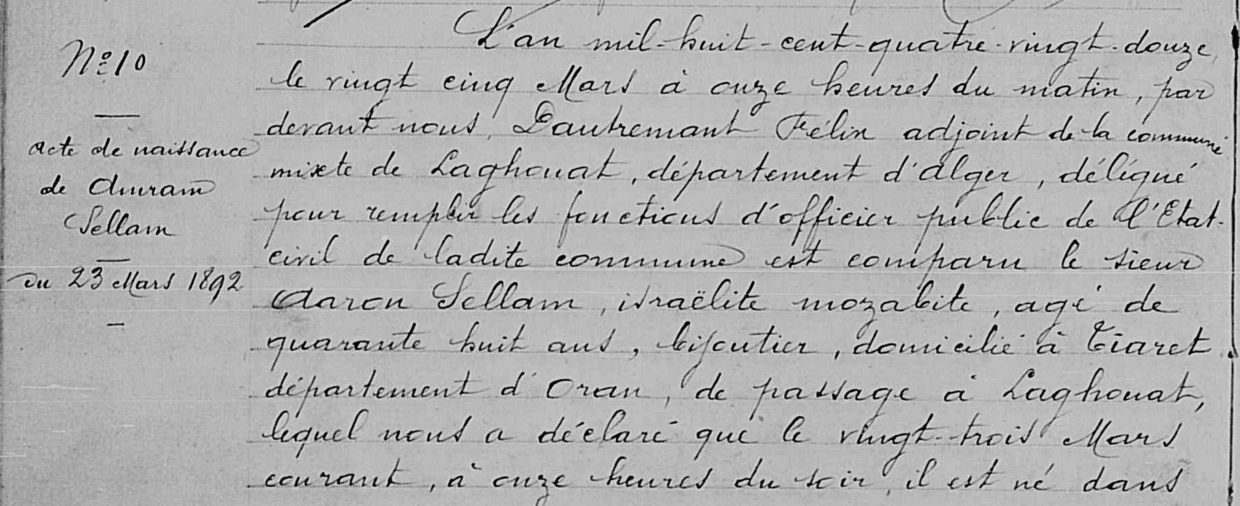 N° 10
acte de naissance
de Amram
Sellam
du 23 Mars 1892
L'an mil-huit-cent-quatre-vingt-douze,
le vingt cinq Mars à onze heures du matin, par
devant nous, Dautremant Félix adjoint de la commune
mixte de Laghouat, département d'Alger, délégué
pour remplir les fonctions d'officier public de l'Etat-
civil de ladite commune est comparu le sieur
Aaron Sellam, israëlite mozabite, agé de
quarante huit ans, bijoutier, domicilié à Tiaret
département d'Oran, de passage à Laghouat,
lequel nous a déclaré que le vingt-trois Mars
courant, à onze heures du soir, il est né dans